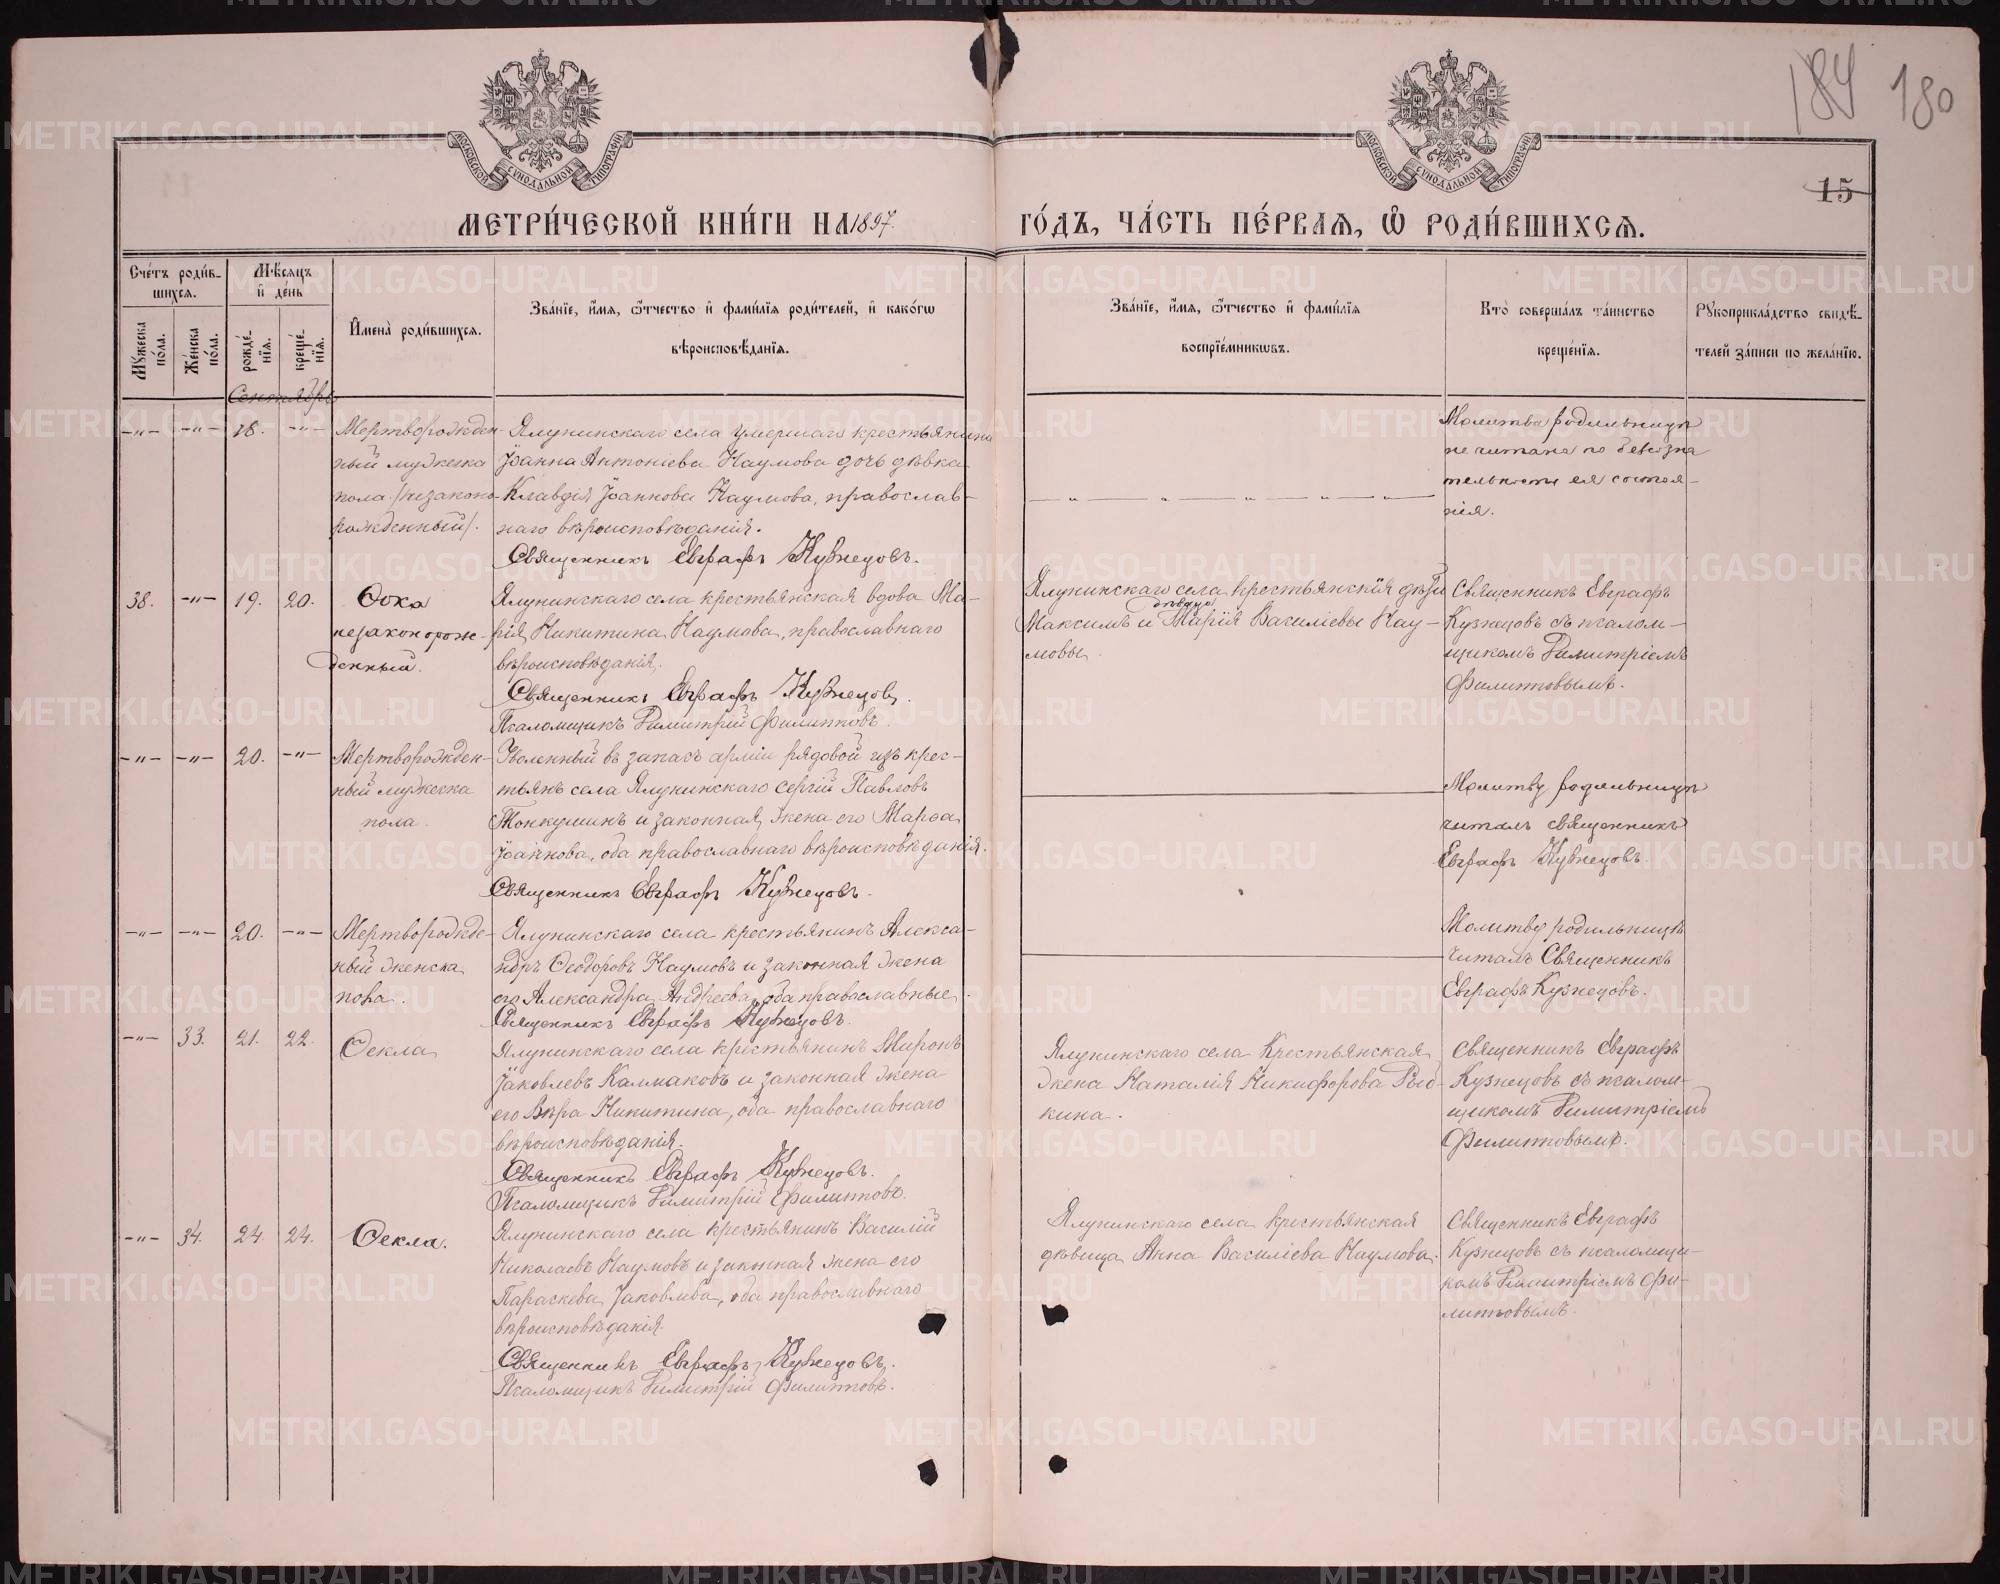 184 180
15
МОСКОВСКОЙ СУНОДАЛЬНОЙ ТИПОГРАФІИ
МОСКОВСКОЙ СУНОДАЛЬНОЙ ТИПОГРАФІИ
МЕТРИ́ЧЕСКОЙ КНИ́ГИ НА 1897 ГО́ДЪ, ЧА́СТЬ ПЕ́РВАЯ, Ѽ РОДИ́ВШИХСЯ.
Сче́тъ роди́в-
шихся.
Мѣ́сяцъ
и҆ де́нь
Мꙋжеска по́ла.
Же́нска по́ла.
рожде́нїя.
креще́нїя.
И҆мена̀ роди́вшихся.
Зва́нїе, и҆́мя, ѿтчество и҆ фами́лїя роди́телей, и҆ како́гѡ
вѣроисповѣ́данїя.
Зва́нїе, и҆́мя, ѿтчество и҆ фами́лїя
воспрїе́мникѡвъ.
Кто̀ соверша́лъ та́инство
креще́нїя.
Рꙋкоприкла́дство свидѣ́-
телей за́писи по жела́нїю.
Сентябрь
—„— —„— 18. —„—
Мертворожден-
ный мужеска
пола /незаконо-
рожденный/.
Ялунинскаго села умершаго крестьянина
Іоанна Антоніева Наумова дочь дѣвка
Клавдія Іоаннова Наумова, православ-
наго вѣроисповѣданія.
Священникъ Евграфъ Кузнецовъ.
Молитва родильницѣ
не читана по безсозна
тельности ея состоя-
нія.
38. —„— 19. 20.
Ѳока
незаконорож-
денный.
Ялунинскаго села крестьянская вдова Ма-
рія Никитина Наумова, православнаго
вѣроисповѣданія.
Священникъ Евграфъ Кузнецовъ.
Псаломщикъ Димитрій Филитовъ.
Ялунинскаго села крестьянскія дѣти
Максимъ и дѣвица Марія Василіевы Нау-
мовы.
Священникъ Евграфъ
Кузнецовъ съ псалом-
щикомъ Димитріемъ
Филитовымъ.
—„— —„— 20. —„—
Мертворожден-
ный мужеска
пола.
Уволенный въ запасъ арміи рядовой изъ крес-
тьянъ села Ялунинскаго Сергій Павловъ
Тонкушинъ и законная жена его Марѳа
Іоаннова, оба православнаго вѣроисповѣданія.
Священникъ Евграфъ Кузнецовъ.
Молитву родильницѣ
читалъ священникъ
Евграфъ Кузнецовъ.
—„— —„— 20. —„—
Мертворожде-
ный женска
пола.
Ялунинскаго села крестьянинъ Алекса-
ндръ Ѳеодоровъ Наумовъ и законная жена
его Александра Андреева, оба православные.
Священникъ Евграфъ Кузнецовъ.
Молитву родильницѣ
читалъ Священникъ
Евграфъ Кузнецовъ.
—„— 33. 21. 22.
Ѳекла
Ялунинскаго села крестьянинъ Миронъ
Іаковлевъ Калмаковъ и законная жена
его Вѣра Никитина, оба православнаго
вѣроисповѣданія.
Священникъ Евграфъ Кузнецовъ.
Псаломщикъ Димитрій Филитовъ.
Ялунинскаго села Крестьянская
жена Наталія Никифорова
кина.
Священникъ Евграфъ
Кузнецовъ съ псалом-
щикомъ Димитріемъ
Филитовымъ.
—„— 34. 24. 24.
Ѳекла.
Ялунинскаго села крестьянинъ Василій
Николаевъ Наумовъ и законная жена его
Параскева Іаковлева, оба православнаго
вѣроисповѣданія.
Священникъ Евграфъ Кузнецовъ.
Псаломщикъ Димитрій Филитовъ.
Ялунинскаго села крестьянская
дѣвица Анна Василіева Наумова.
Священникъ Евграфъ
Кузнецовъ съ псаломщи-
комъ Димитріемъ Фи-
литовымъ.
METRIKI.GASO-URAL.RU